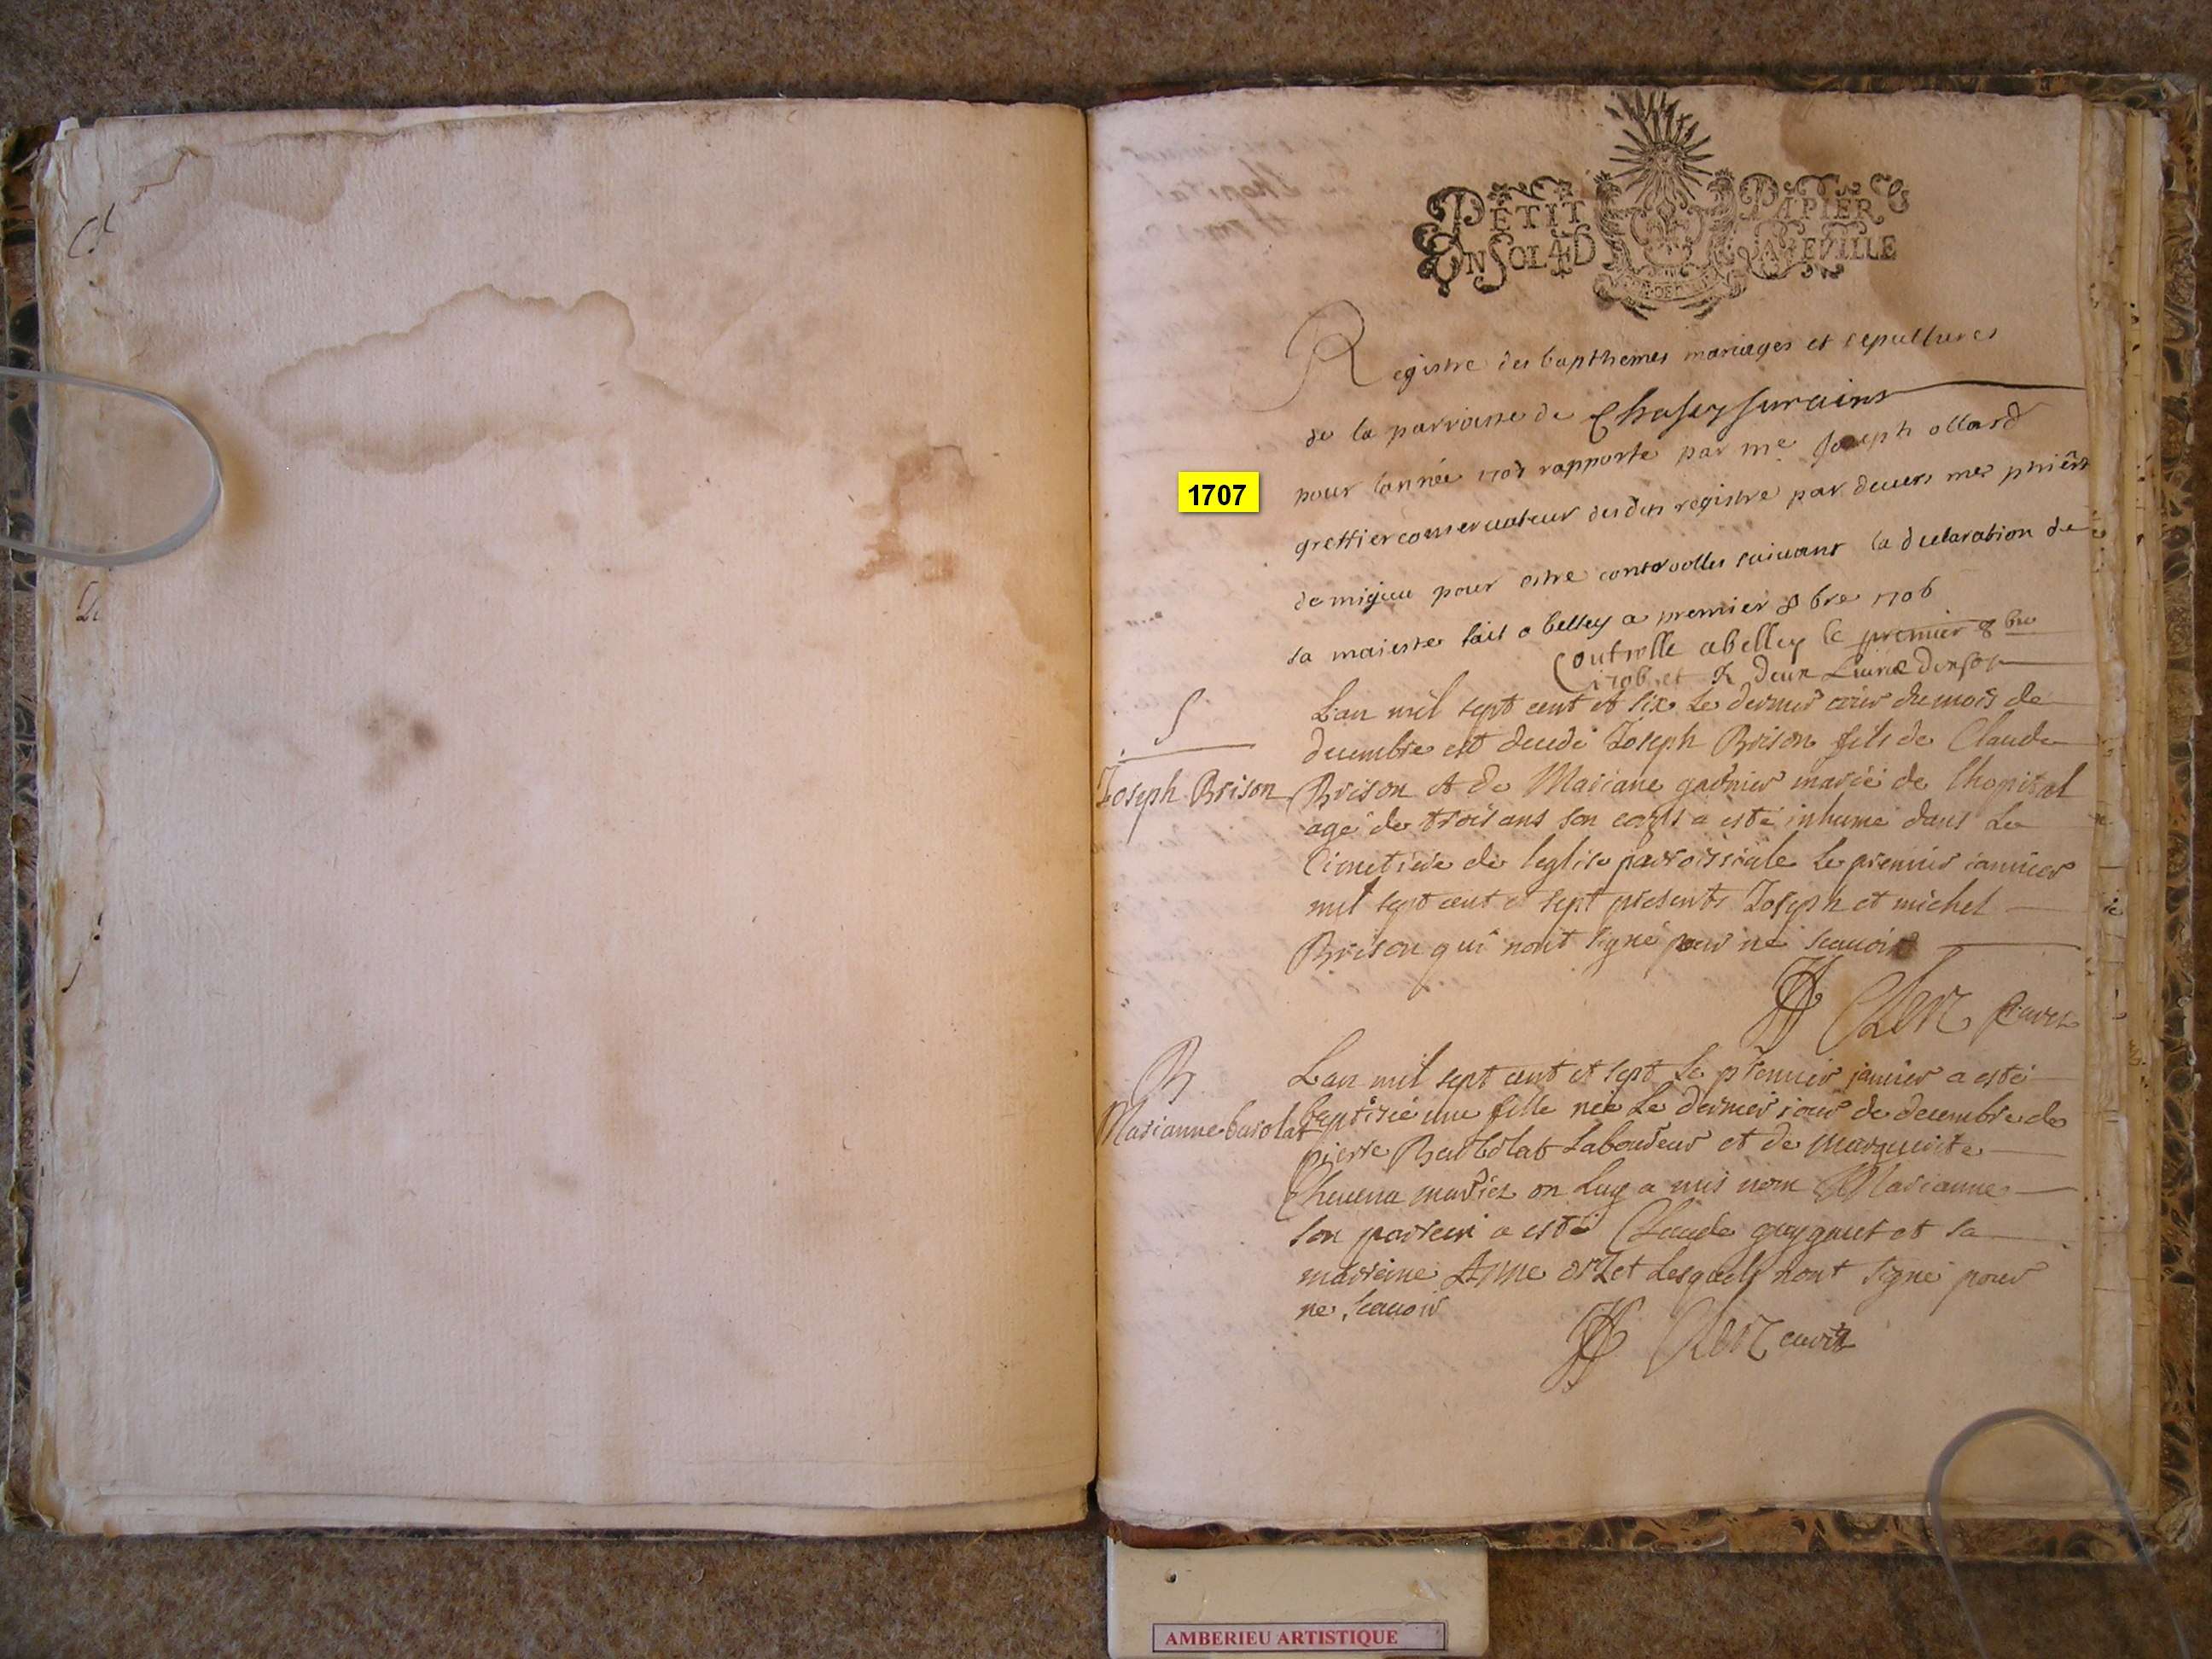 PETIT PAPIER
UN SOL 4 D LA FEUILLE
Registre des bapthemes mariages et sepultures
de la parroisse de Chasey sur ains
1707
pour lannée 1707 rapporte par me Joseph ollard
greffier conservateur desdits registre par devers mes
de migieu pour estre controolles suivant la declaration de
sa maieste fait a belley a premier 8bre 1706
Controlle a belley le premier 8bre
1706 et R deux Livre
S
Joseph Brison
Lan mil sept cent et six Le dernier du mois de
decembre est decede Joseph Brison fils de Claude
Brison et de Mariane garnier mariéé de lhopital
agé de trois ans son corps a esté inhumé dans Le
Cimetiere de leglise parroissiale Le premier ianvier
mil sept cent et sept presents Joseph et michel
Brison qui nont signé pour ne scavoir
Curez
B
Marianne barolat
Lan mil sept cent et sept Le premier janvier a esté
baptisée une fille neé Le dernier iour de decembre de
pierre Laboureur et de marguerite
mariez on Luy a mis nom Marianne
son parrein a esté Claude guygnet et sa
marreine Anne Lesquels nont signé pour
ne scavoir
curéz
AMBERIEU ARTISTIQUE